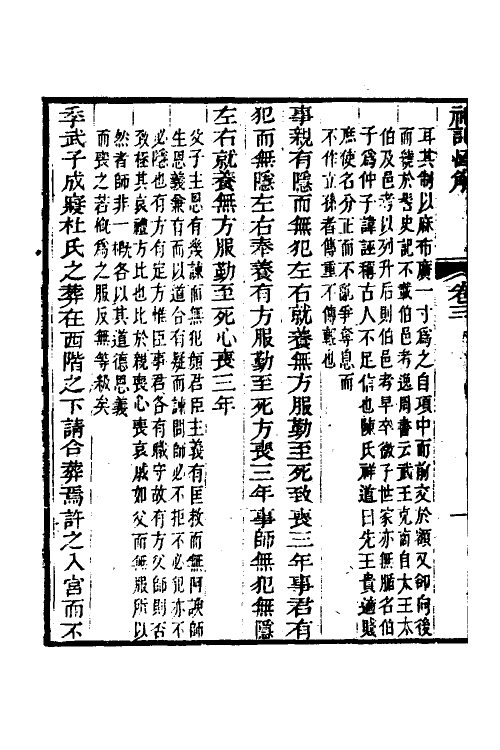 禮記
卷三
耳其制以麻布廣一寸爲之自項中而前交於額又卻向後
而繞於髻史記不載伯邑考逸周書云武王克商自大王太
伯及邑考以列升后則伯邑考早卒微子世家亦無腯名伯
子爲仲子諱誣稱古人不足信也陳氏祥道曰先王貴適賤
庶使名分正而不爭奪息而
不作立孫者傳重不傳輕也
事親有隱而無犯左右就養無方服勤至死致喪三年事君有
犯而無隱左右奉養有方服勤至死方喪三年事師無犯無隱
左右就養無方服勤至死心喪三年
父子主恩有幾諫而無犯顏君臣主義有匡救而無阿諛師
生恩義兼有而以道合有疑而諫問師必不拒不必犯亦不
必隱也有方有定方惟臣事君各有職守故有方父師則否
致極其哀禮方比也比於親喪心喪哀戚如父而無服所以
然者師非一概各以其道德恩義
而喪之若概爲之服反無等殺矣
季武子成寢杜氏之葬在西階之下請合葬焉許之入宮而不